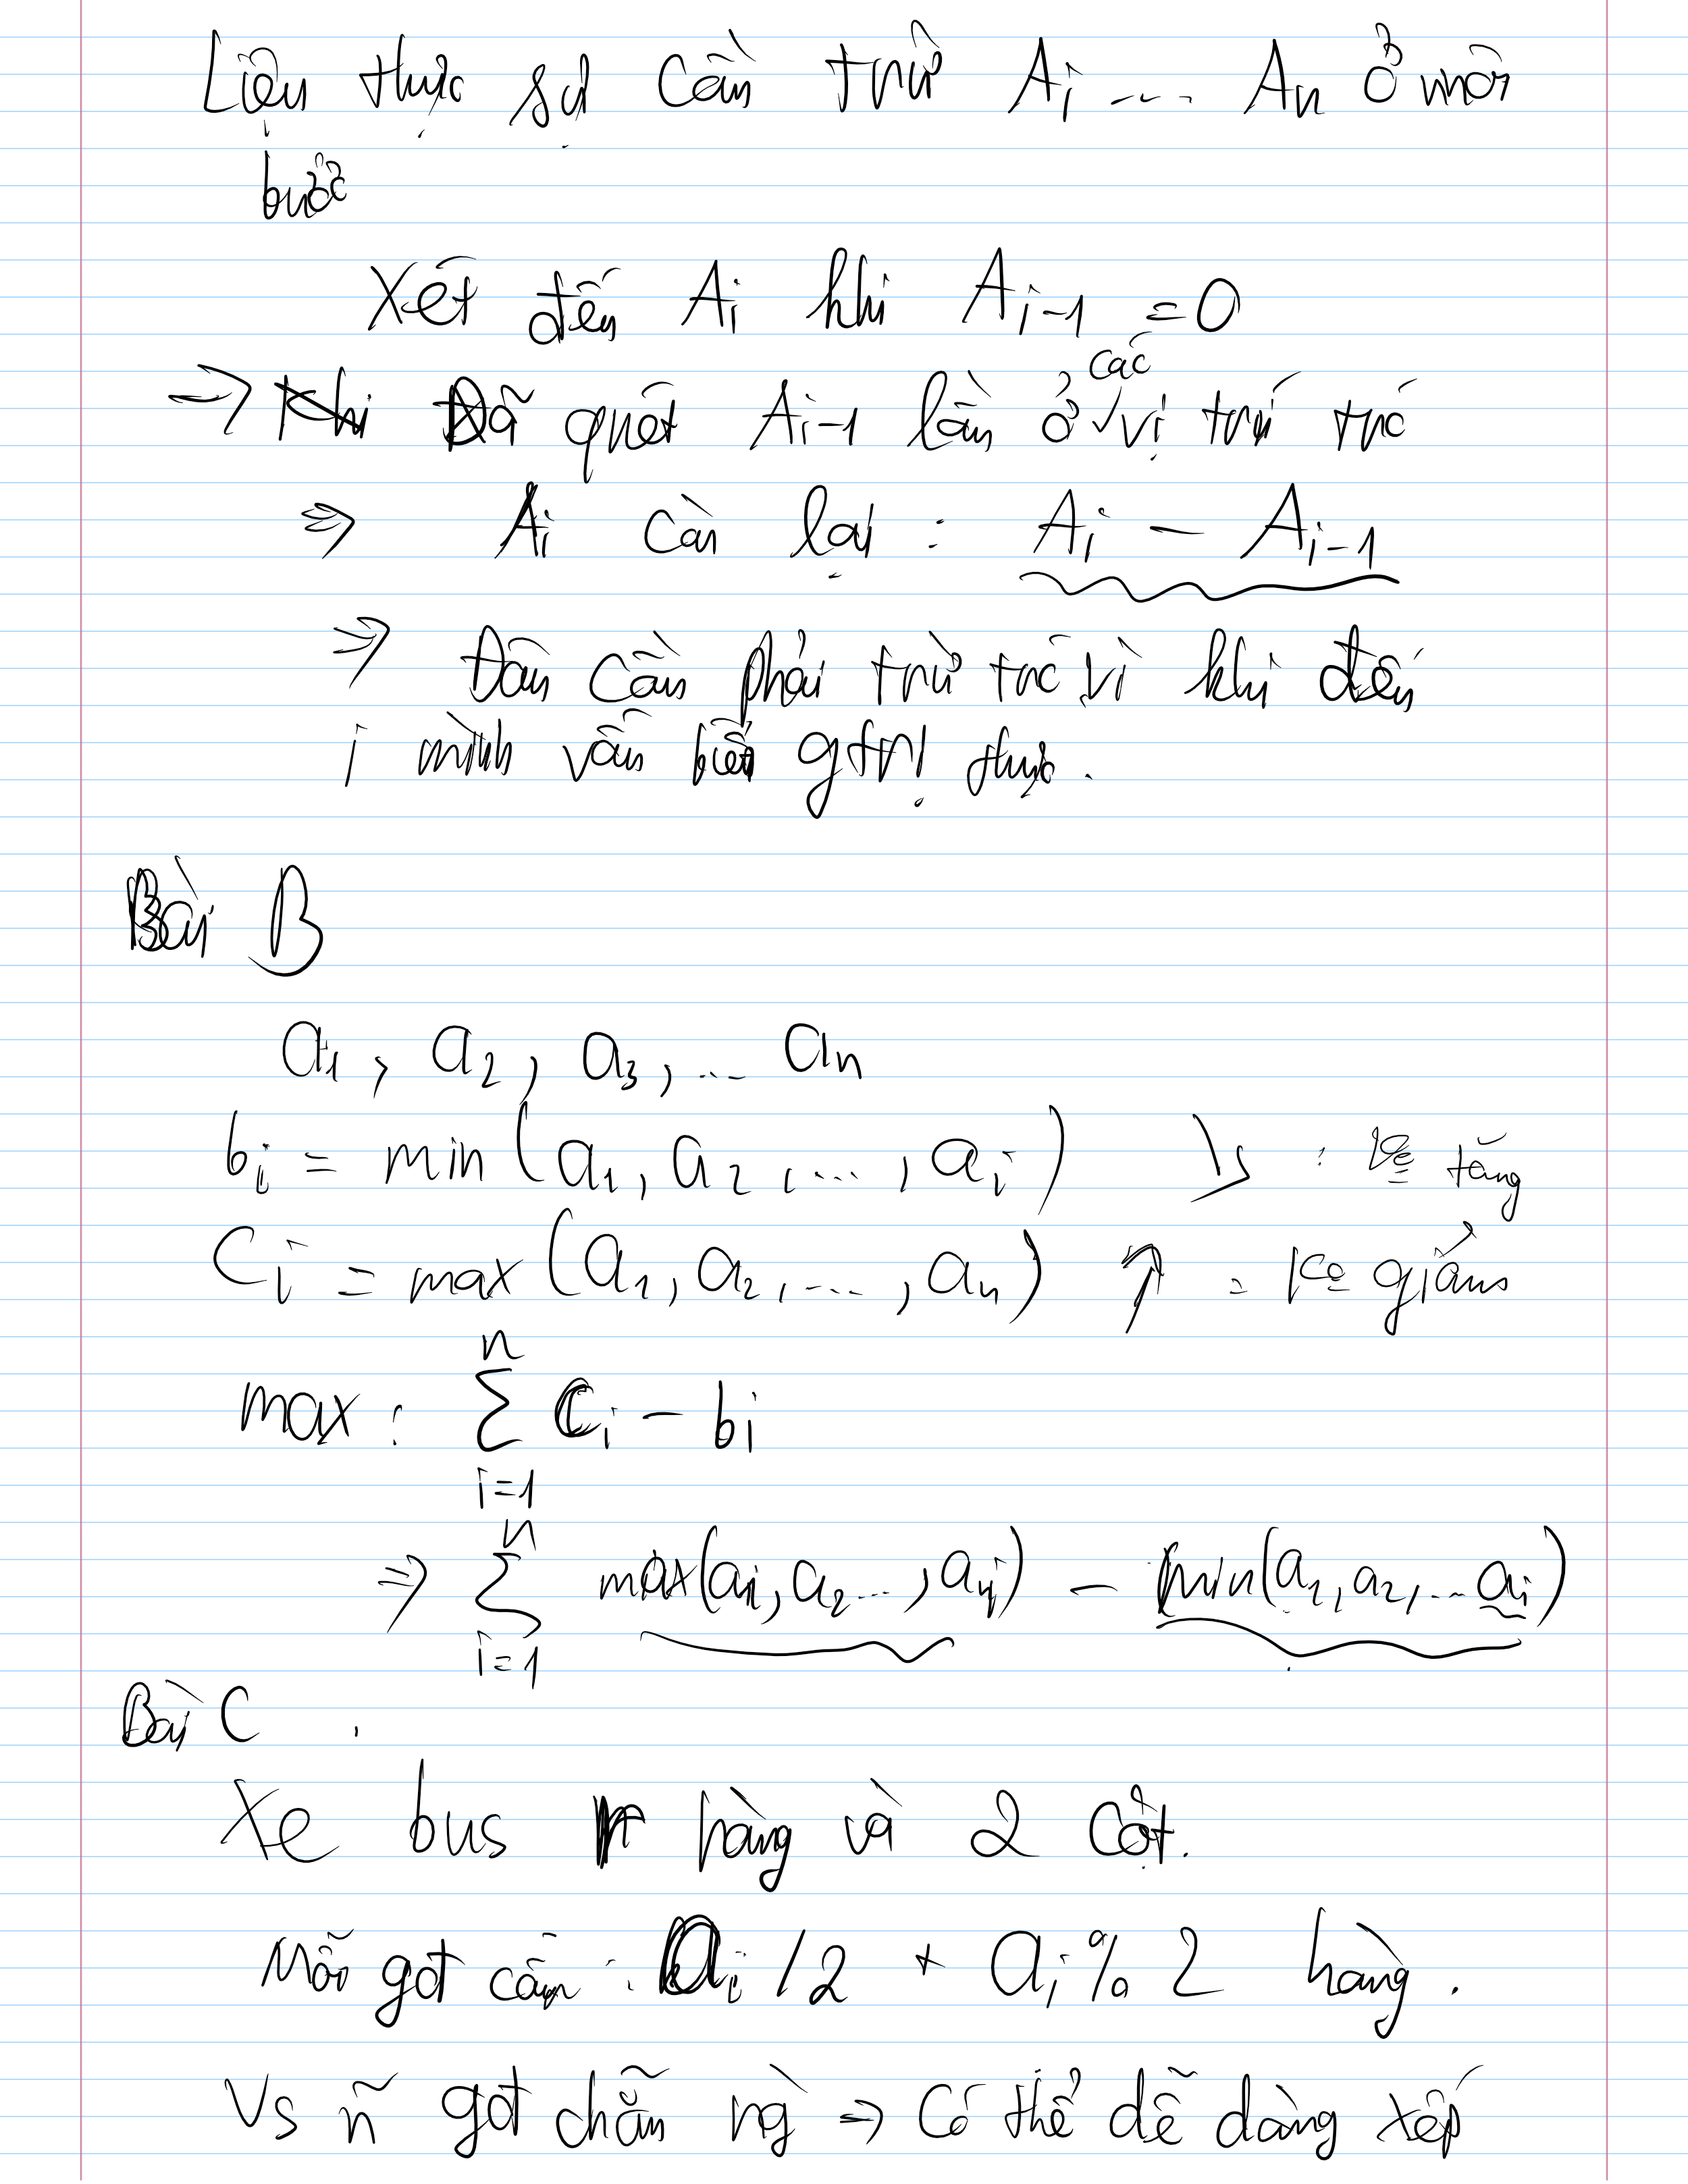 Liệu thực sự cần trừ Ai ... An ở mỗi
bước
Xét đến Ai khi Ai-1 = 0
→ Đã quét Ai-1 lần ở các vị trí trc
⇒ Ai còn lại : Ai - Ai-1
⇒ Đâu cần phải trừ trc vì khi đến
i mình vẫn biết gtrị thực.
Bài B
a1, a2, a3, ... an
bi = min(a1, a2, ..., ai) ↘ : ko tăng
Ci = max(a1, a2, ..., an) ↗ = ko giảm
max : n∑i=1 Ci - bi
⇒ n∑i=1 max(a1, a2..., ai) - min(a1, a2, ... ai)
Bài C .
Xe bus r hàng và 2 cột.
Mỗi gđ cần : ai / 2 + ai % 2 hàng.
Vs ñ gđ chẵn ng → Có thể dễ dàng xếp